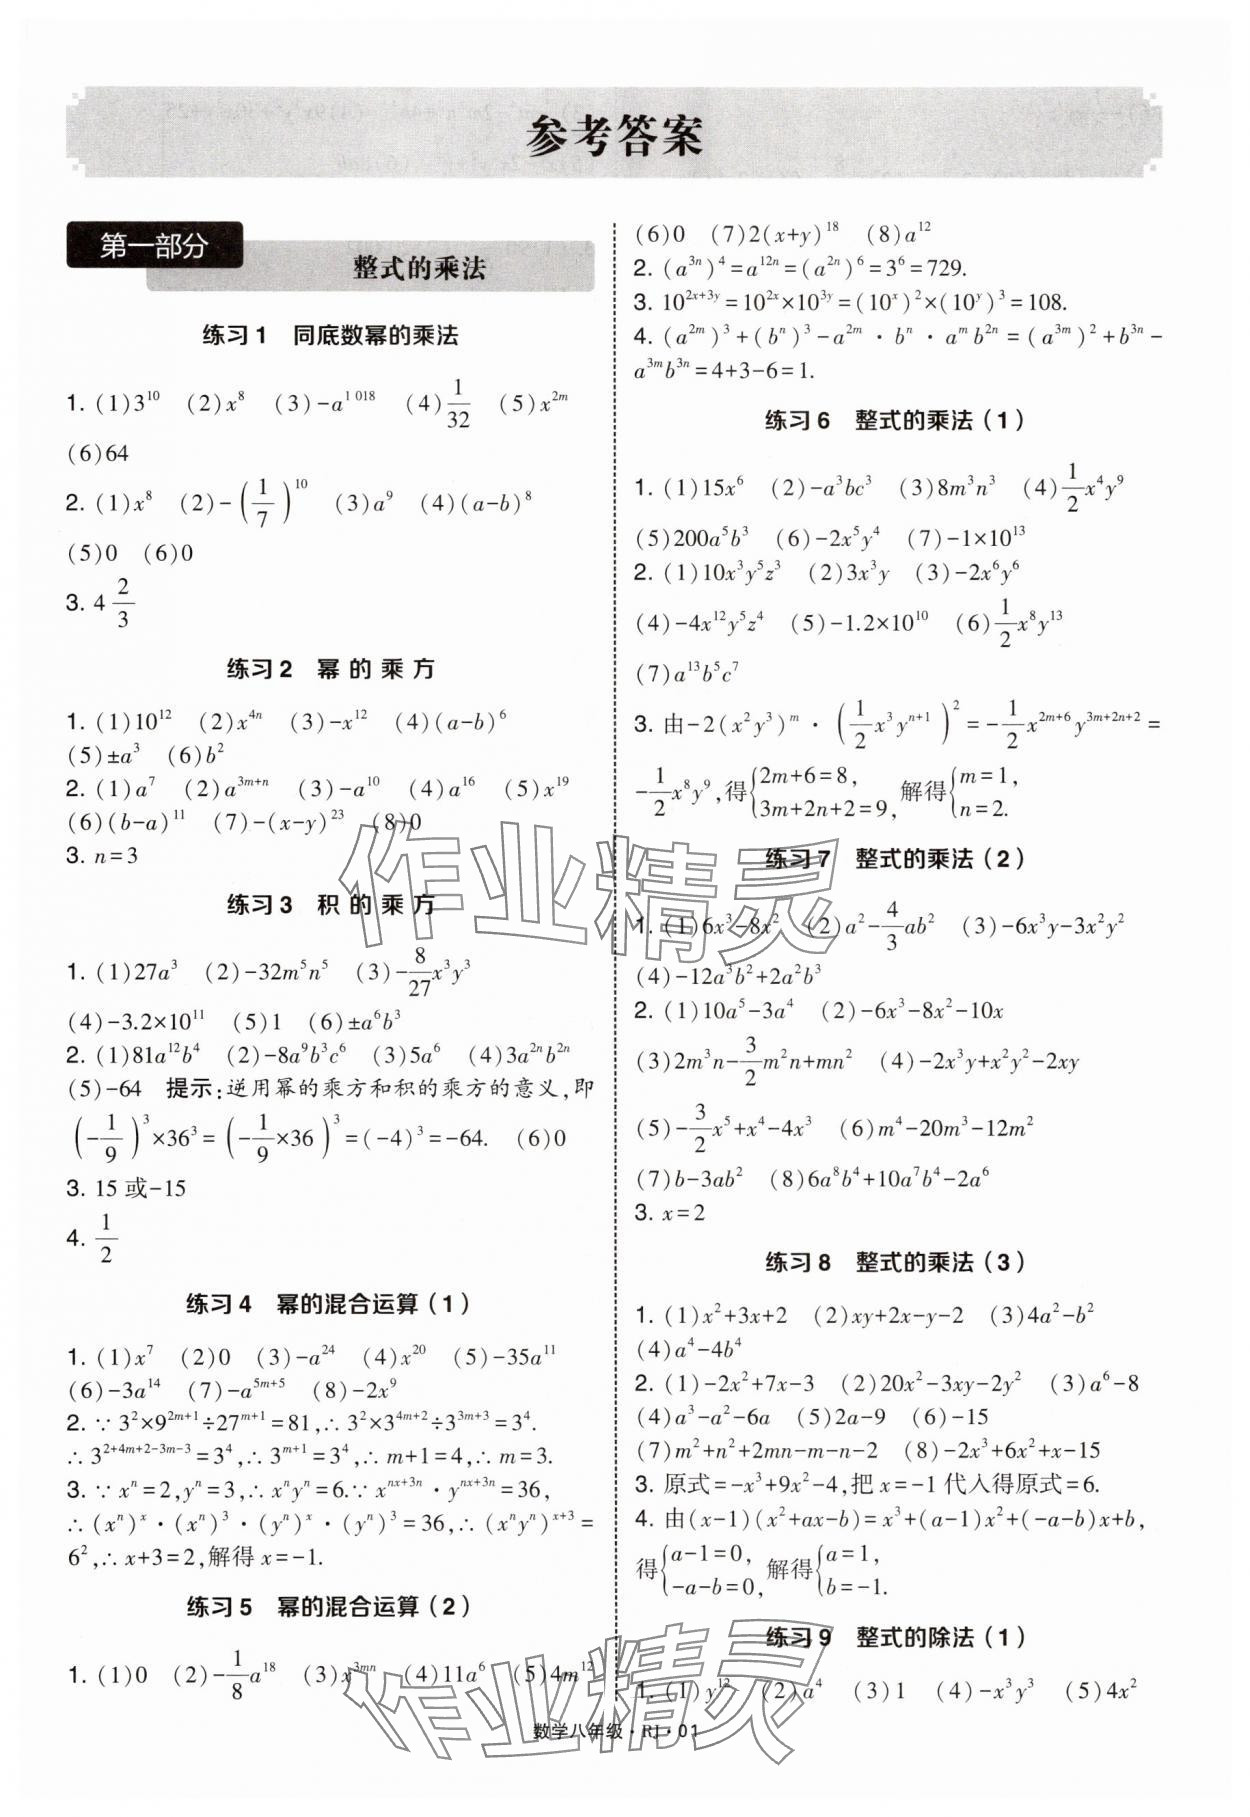 参考答案
第一部分
整式的乘法
练习1 同底数幂的乘法
1. (1)3^{10} (2)x^8 (3)-a^{1 018} (4)\frac{1}{32} (5)x^{2m}
(6)64
2. (1)x^8 (2)-(\frac{1}{7})^{10} (3)a^9 (4)(a-b)^8
(5)0 (6)0
3. 4\frac{2}{3}
练习2 幂的乘方
1. (1)10^{12} (2)x^{4n} (3)-x^{12} (4)(a-b)^6
(5)±a^3 (6)b^2
2. (1)a^7 (2)a^{3m+n} (3)-a^{10} (4)a^{16} (5)x^{19}
(6)(b-a)^{11} (7)-(x-y)^{23} (8)0
3. n=3
练习3 积的乘方
1. (1)27a^3 (2)-32m^5n^5 (3)-\frac{8}{27}x^3y^3
(4)-3.2×10^{11} (5)1 (6)±a^6b^3
2. (1)81a^{12}b^4 (2)-8a^9b^3c^6 (3)5a^6 (4)3a^{2n}b^{2n}
(5)-64 提示:逆用幂的乘方和积的乘方的意义,即
(-\frac{1}{9})^3×36^3=(-\frac{1}{9}×36)^3=(-4)^3=-64. (6)0
3. 15或-15
4. \frac{1}{2}
练习4 幂的混合运算(1)
1. (1)x^7 (2)0 (3)-a^{24} (4)x^{20} (5)-35a^{11}
(6)-3a^{14} (7)-a^{5m+5} (8)-2x^9
2. ∵3^2×9^{2m+1}÷27^{m+1}=81,∴3^2×3^{4m+2}÷3^{3m+3}=3^4.
∴3^{2+4m+2-3m-3}=3^4,∴3^{m+1}=3^4,∴m+1=4,∴m=3.
3. ∵x^n=2,y^n=3,∴x^ny^n=6.∵x^{nx+3n}·y^{nx+3n}=36,
∴(x^n)^x·(x^n)^3·(y^n)^x·(y^n)^3=36,∴(x^ny^n)^{x+3}=
6^2,∴x+3=2,解得x=-1.
练习5 幂的混合运算(2)
1. (1)0 (2)-\frac{1}{8}a^{18} (3)x^{3mn} (4)11a^6 (5)4m^{12}
(6)0 (7)2(x+y)^{18} (8)a^{12}
2. (a^{3n})^4=a^{12n}=(a^{2n})^6=3^6=729.
3. 10^{2x+3y}=10^{2x}×10^{3y}=(10^x)^2×(10^y)^3=108.
4. (a^{2m})^3+(b^n)^3-a^{2m}·b^n·a^mb^{2n}=(a^{3m})^2+b^{3n}-
a^{3m}b^{3n}=4+3-6=1.
练习6 整式的乘法(1)
1. (1)15x^6 (2)-a^3bc^3 (3)8m^3n^3 (4)\frac{1}{2}x^4y^9
(5)200a^5b^3 (6)-2x^5y^4 (7)-1×10^{13}
2. (1)10x^3y^5z^3 (2)3x^3y (3)-2x^6y^6
(4)-4x^{12}y^5z^4 (5)-1.2×10^{10} (6)\frac{1}{2}x^8y^{13}
(7)a^{13}b^5c^7
3. 由-2(x^2y^3)^m·(\frac{1}{2}x^3y^{n+1})^2=-\frac{1}{2}x^{2m+6}y^{3m+2n+2}=
-\frac{1}{2}x^8y^9,得{2m+6=8, 3m+2n+2=9, 解得{m=1, n=2.
练习7 整式的乘法(2)
1. (1)6x^3-8x^2 (2)a^2-\frac{4}{3}ab^2 (3)-6x^3y-3x^2y^2
(4)-12a^3b^2+2a^2b^3
2. (1)10a^5-3a^4 (2)-6x^3-8x^2-10x
(3)2m^3n-\frac{3}{2}m^2n+mn^2 (4)-2x^3y+x^2y^2-2xy
(5)-\frac{3}{2}x^5+x^4-4x^3 (6)m^4-20m^3-12m^2
(7)b-3ab^2 (8)6a^8b^4+10a^7b^4-2a^6
3. x=2
练习8 整式的乘法(3)
1. (1)x^2+3x+2 (2)xy+2x-y-2 (3)4a^2-b^2
(4)a^4-4b^4
2. (1)-2x^2+7x-3 (2)20x^2-3xy-2y^2 (3)a^6-8
(4)a^3-a^2-6a (5)2a-9 (6)-15
(7)m^2+n^2+2mn-m-n-2 (8)-2x^3+6x^2+x-15
3. 原式=-x^3+9x^2-4,把x=-1代入得原式=6.
4. 由(x-1)(x^2+ax-b)=x^3+(a-1)x^2+(-a-b)x+b,
得{a-1=0, -a-b=0, 解得{a=1, b=-1.
练习9 整式的除法(1)
1. (1)y^{12} (2)a^4 (3)1 (4)-x^3y^3 (5)4x^2
数学八年级·RJ·01
作业精灵
作业精灵